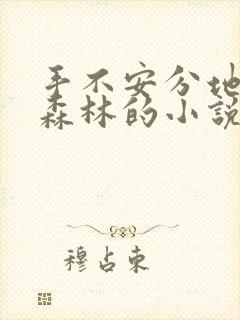 手不安分地
森林的小说
穆占东